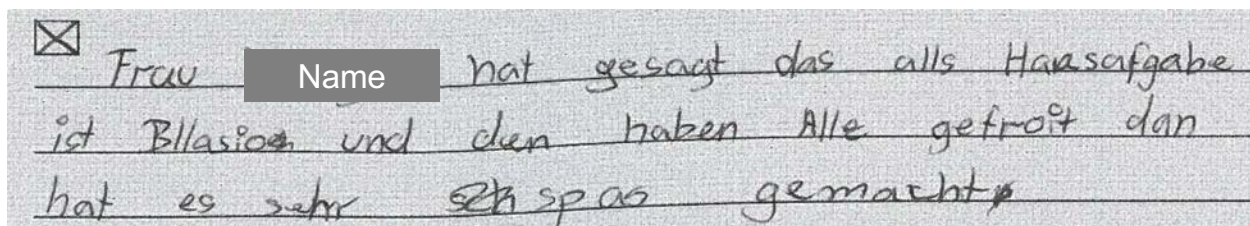 Frau Name hat gesagt das alls Haasafgabe
ist Bllasion und den haben Alle gefroit dan
hat es sehr spas gemacht